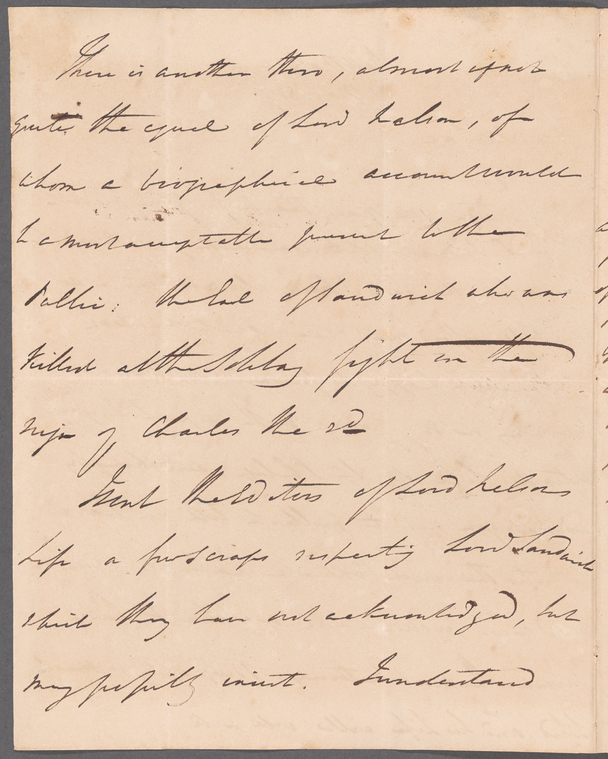 There is another Hero, almost if not
quite the equal of Lord Nelson, of
whom a biographical account would
be a most acceptable present to the
Public: the Earl of Sandwich who was
killed at the Solebay fight in the
reign of Charles the 2d
I sent the Editors of Lord Nelsons
Life a few scraps respecting Lord Sandwich
which they have not acknowledged, but
may possibly insert. I understand